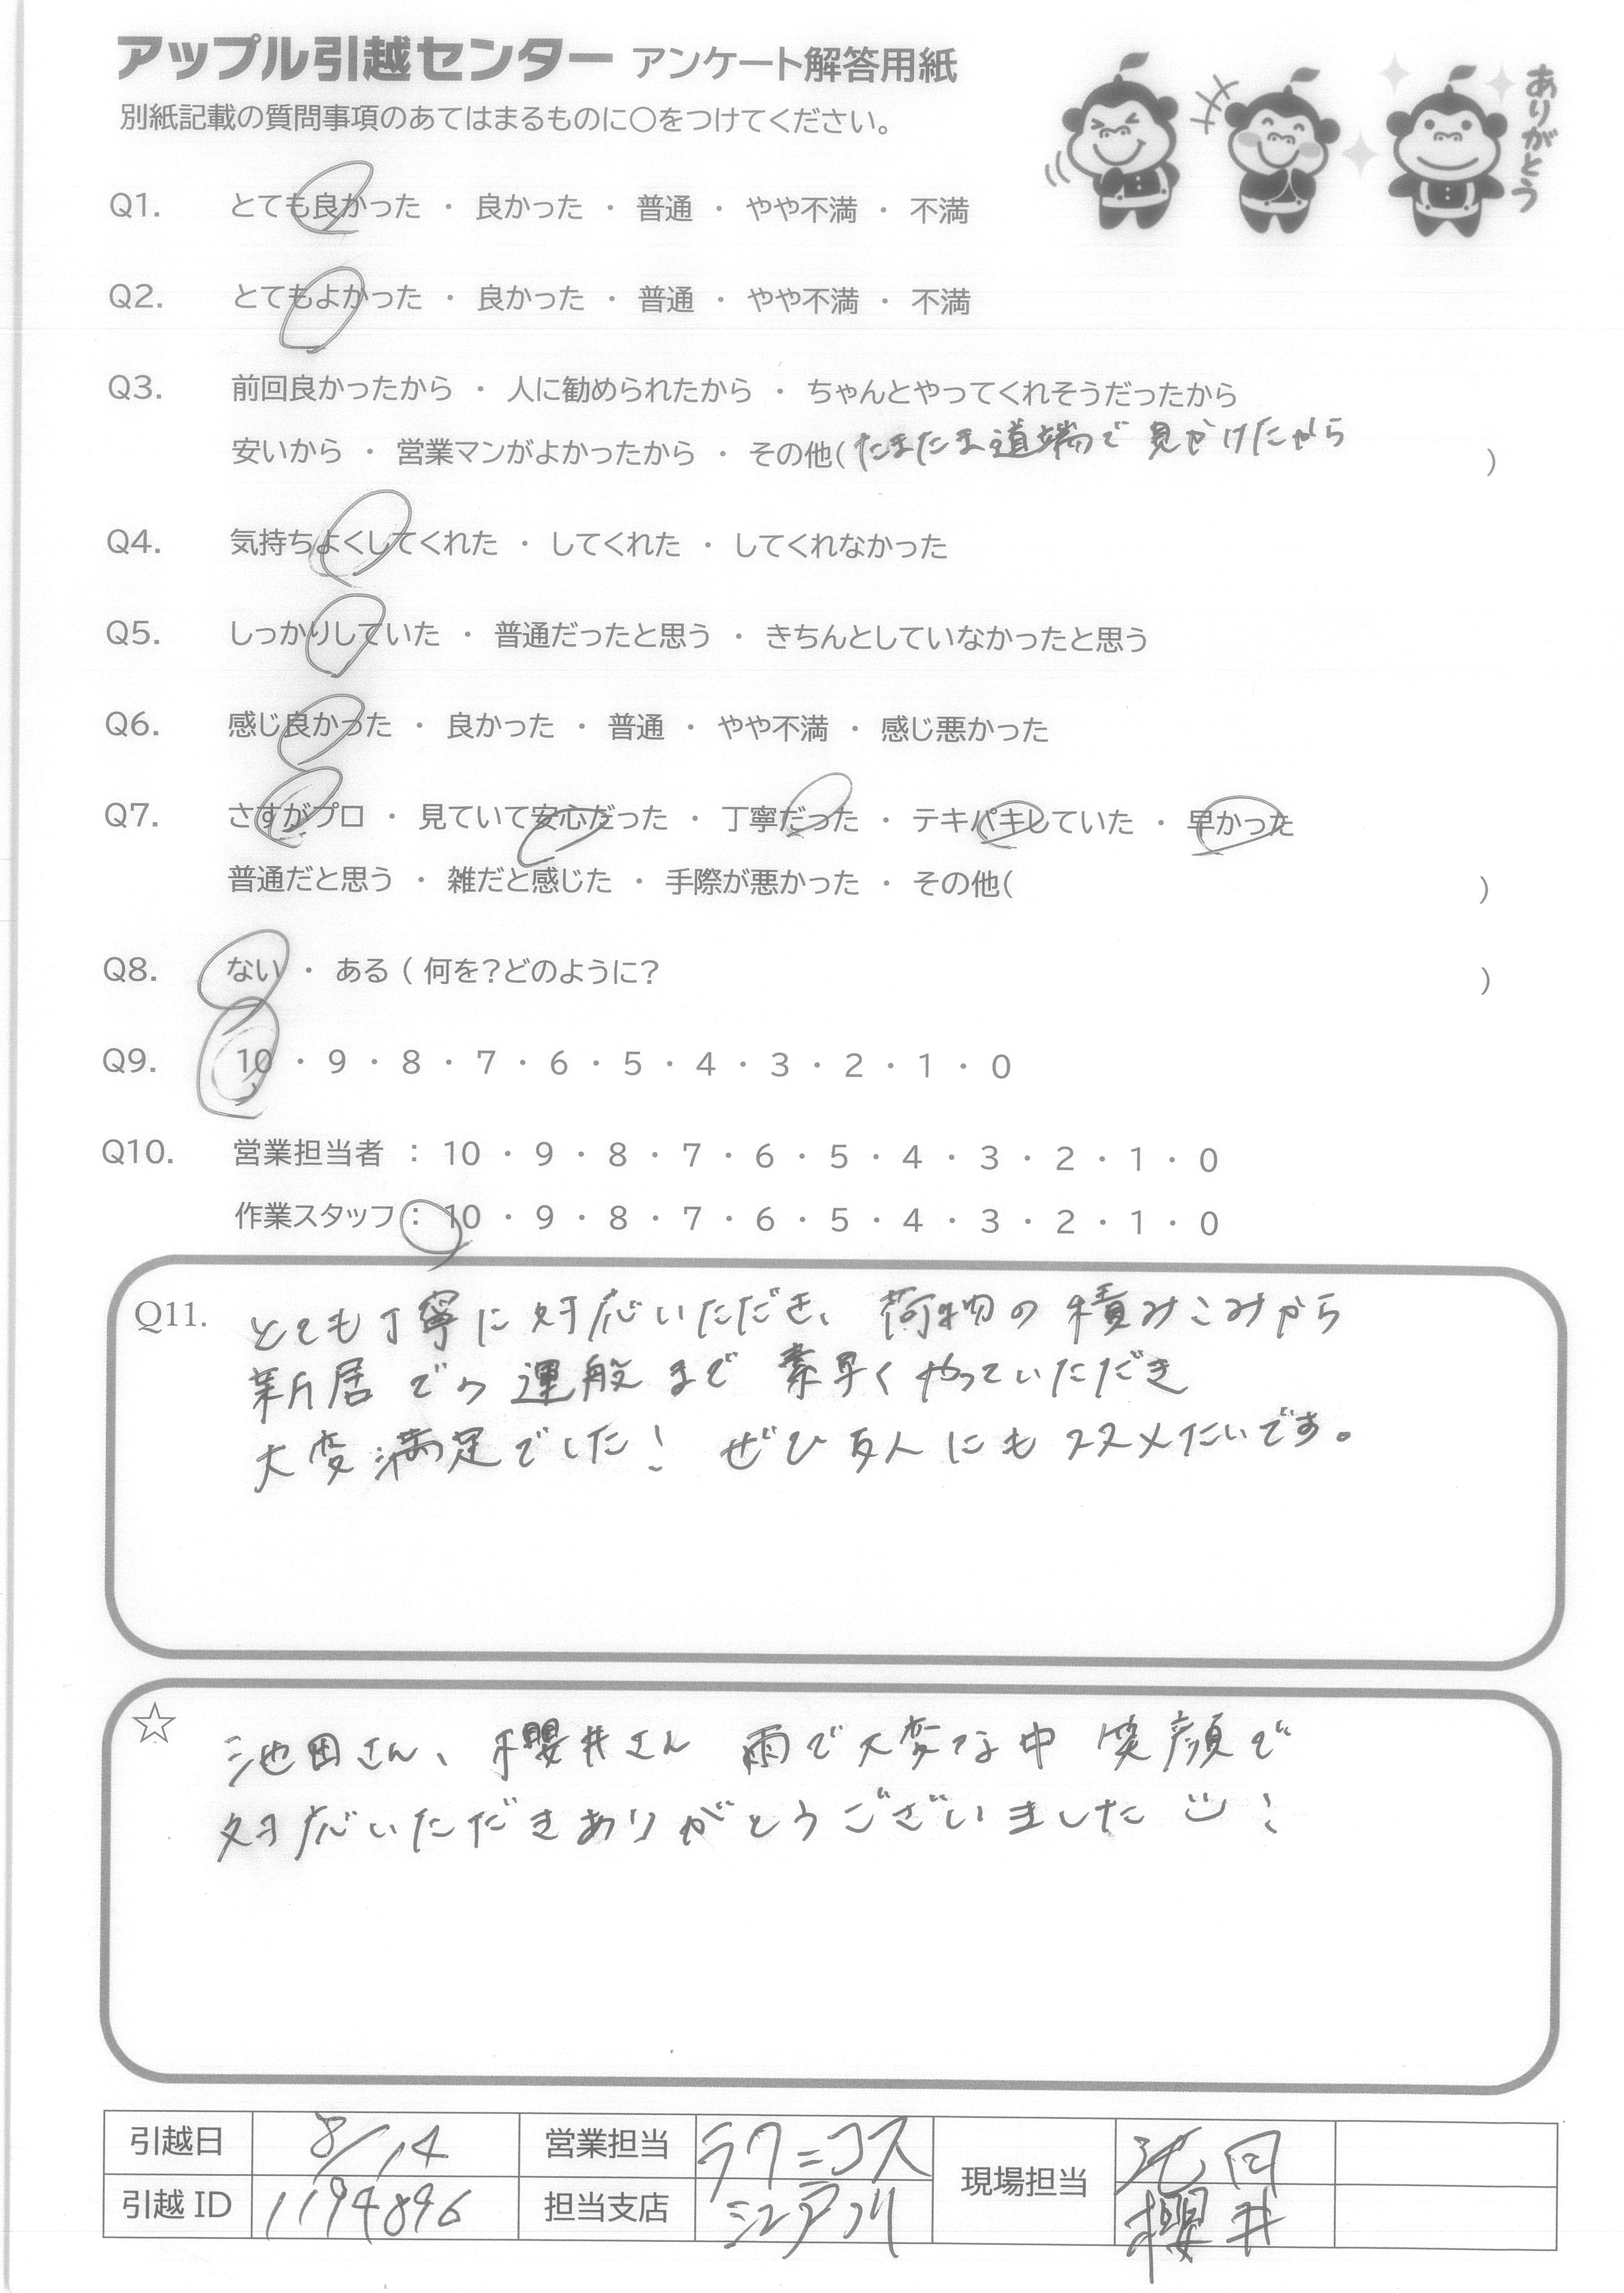 アップル引越センター アンケート解答用紙
別紙記載の質問事項のあてはまるものに〇をつけてください。
ありがとう
Q1. とても良かった ・ 良かった ・ 普通 ・ やや不満 ・ 不満
Q2. とてもよかった ・ 良かった ・ 普通 ・ やや不満 ・ 不満
Q3. 前回良かったから ・ 人に勧められたから ・ ちゃんとやってくれそうだったから
安いから ・ 営業マンがよかったから ・ その他(たまたま道端で見かけたから )
Q4. 気持ちよくしてくれた ・ してくれた ・ してくれなかった
Q5. しっかりしていた ・ 普通だったと思う ・ きちんとしていなかったと思う
Q6. 感じ良かった ・ 良かった ・ 普通 ・ やや不満 ・ 感じ悪かった
Q7. さすがプロ ・ 見ていて安心だった ・ 丁寧だった ・ テキパキしていた ・ 早かった
普通だと思う ・ 雑だと感じた ・ 手際が悪かった ・ その他( )
Q8. ない ・ ある ( 何を？どのように？ )
Q9. 10 ・ 9 ・ 8 ・ 7 ・ 6 ・ 5 ・ 4 ・ 3 ・ 2 ・ 1 ・ 0
Q10. 営業担当者 : 10 ・ 9 ・ 8 ・ 7 ・ 6 ・ 5 ・ 4 ・ 3 ・ 2 ・ 1 ・ 0
作業スタッフ : 10 ・ 9 ・ 8 ・ 7 ・ 6 ・ 5 ・ 4 ・ 3 ・ 2 ・ 1 ・ 0
Q11. とても丁寧に対応いただき、荷物の積みこみから
新居での運搬まで素早くやっていただき
大変満足でした！ ぜひ友人にもススメたいです。
☆ 池田さん、櫻井さん 雨で大変な中 笑顔で
対応いただきありがとうございました！
引越日 8/14 営業担当 ラクニコス 現場担当 池田
引越ID 1194896 担当支店 江戸川 櫻井